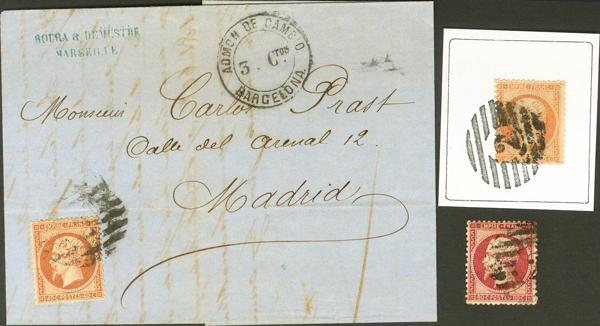 BOURA & DEMESTRE
MARSEILLE
ADMON DE CAMBIO
3 Ctos
BARCELONA
Monsieur Carlos Prast
Calle del Arenal 12.
Madrid
EMPIRE FRANC
40 C POSTES 40 C
EMPIRE FRANC
EMPIRE FRANC
80 C POSTES 80 C